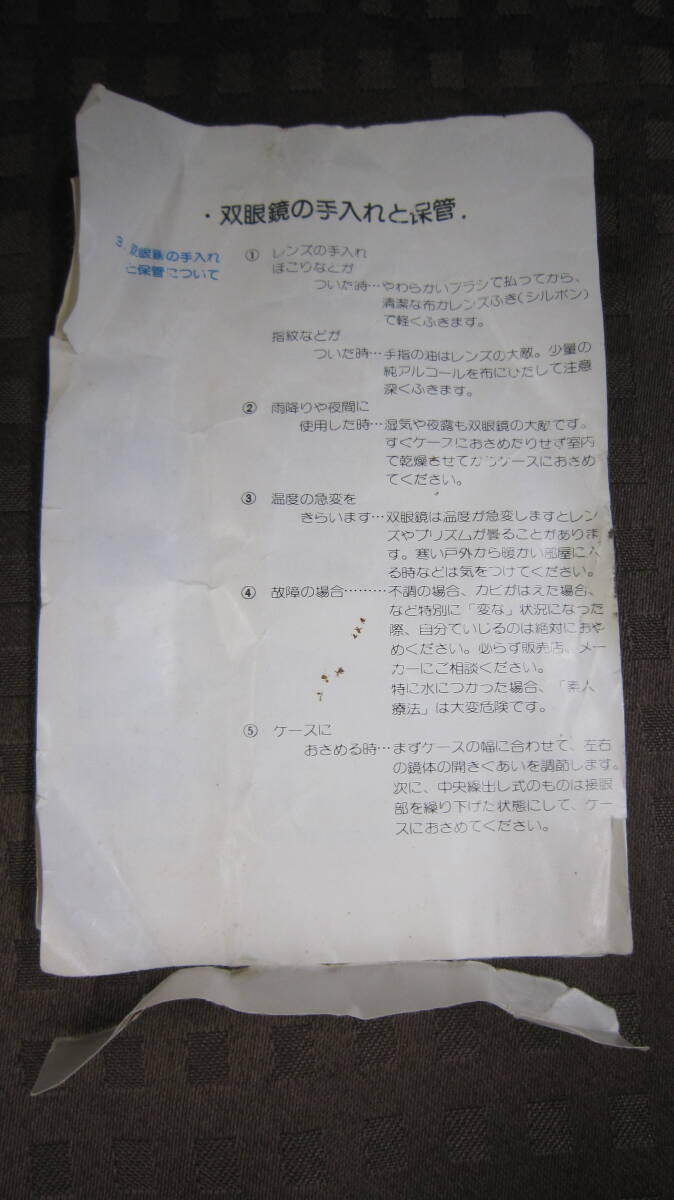 ・双眼鏡の手入れと保管．
3 双眼鏡の手入れ
と保管について
① レンズの手入れ
ほこりなどが
ついた時…やわらかいブラシで払ってから、
清潔な布かレンズふき(シルボン)
で軽くふきます。
指紋などが
ついた時…手指の油はレンズの大敵。少量の
純アルコールを布にひたして注意
深くふきます。
② 雨降りや夜間に
使用した時…湿気や夜露も双眼鏡の大敵です。
すぐケースにおさめたりせず室内
で乾燥させてからケースにおさめ
てください。
③ 温度の急変を
きらいます…双眼鏡は温度が急変しますとレン
ズやプリズムが曇ることがありま
す。寒い戸外から暖かい部屋に入
る時などは気をつけてください。
④ 故障の場合………不調の場合、カビがはえた場合、
など特別に「変な」状況になった
際、自分でいじるのは絶対におや
めください。必らず販売店、メー
カーにご相談ください。
特に水につかった場合、「素人
療法」は大変危険です。
⑤ ケースに
おさめる時…まずケースの幅に合わせて、左右
の鏡体の開きぐあいを調節します。
次に、中央繰出し式のものは接眼
部を繰り下げた状態にして、ケー
スにおさめてください。